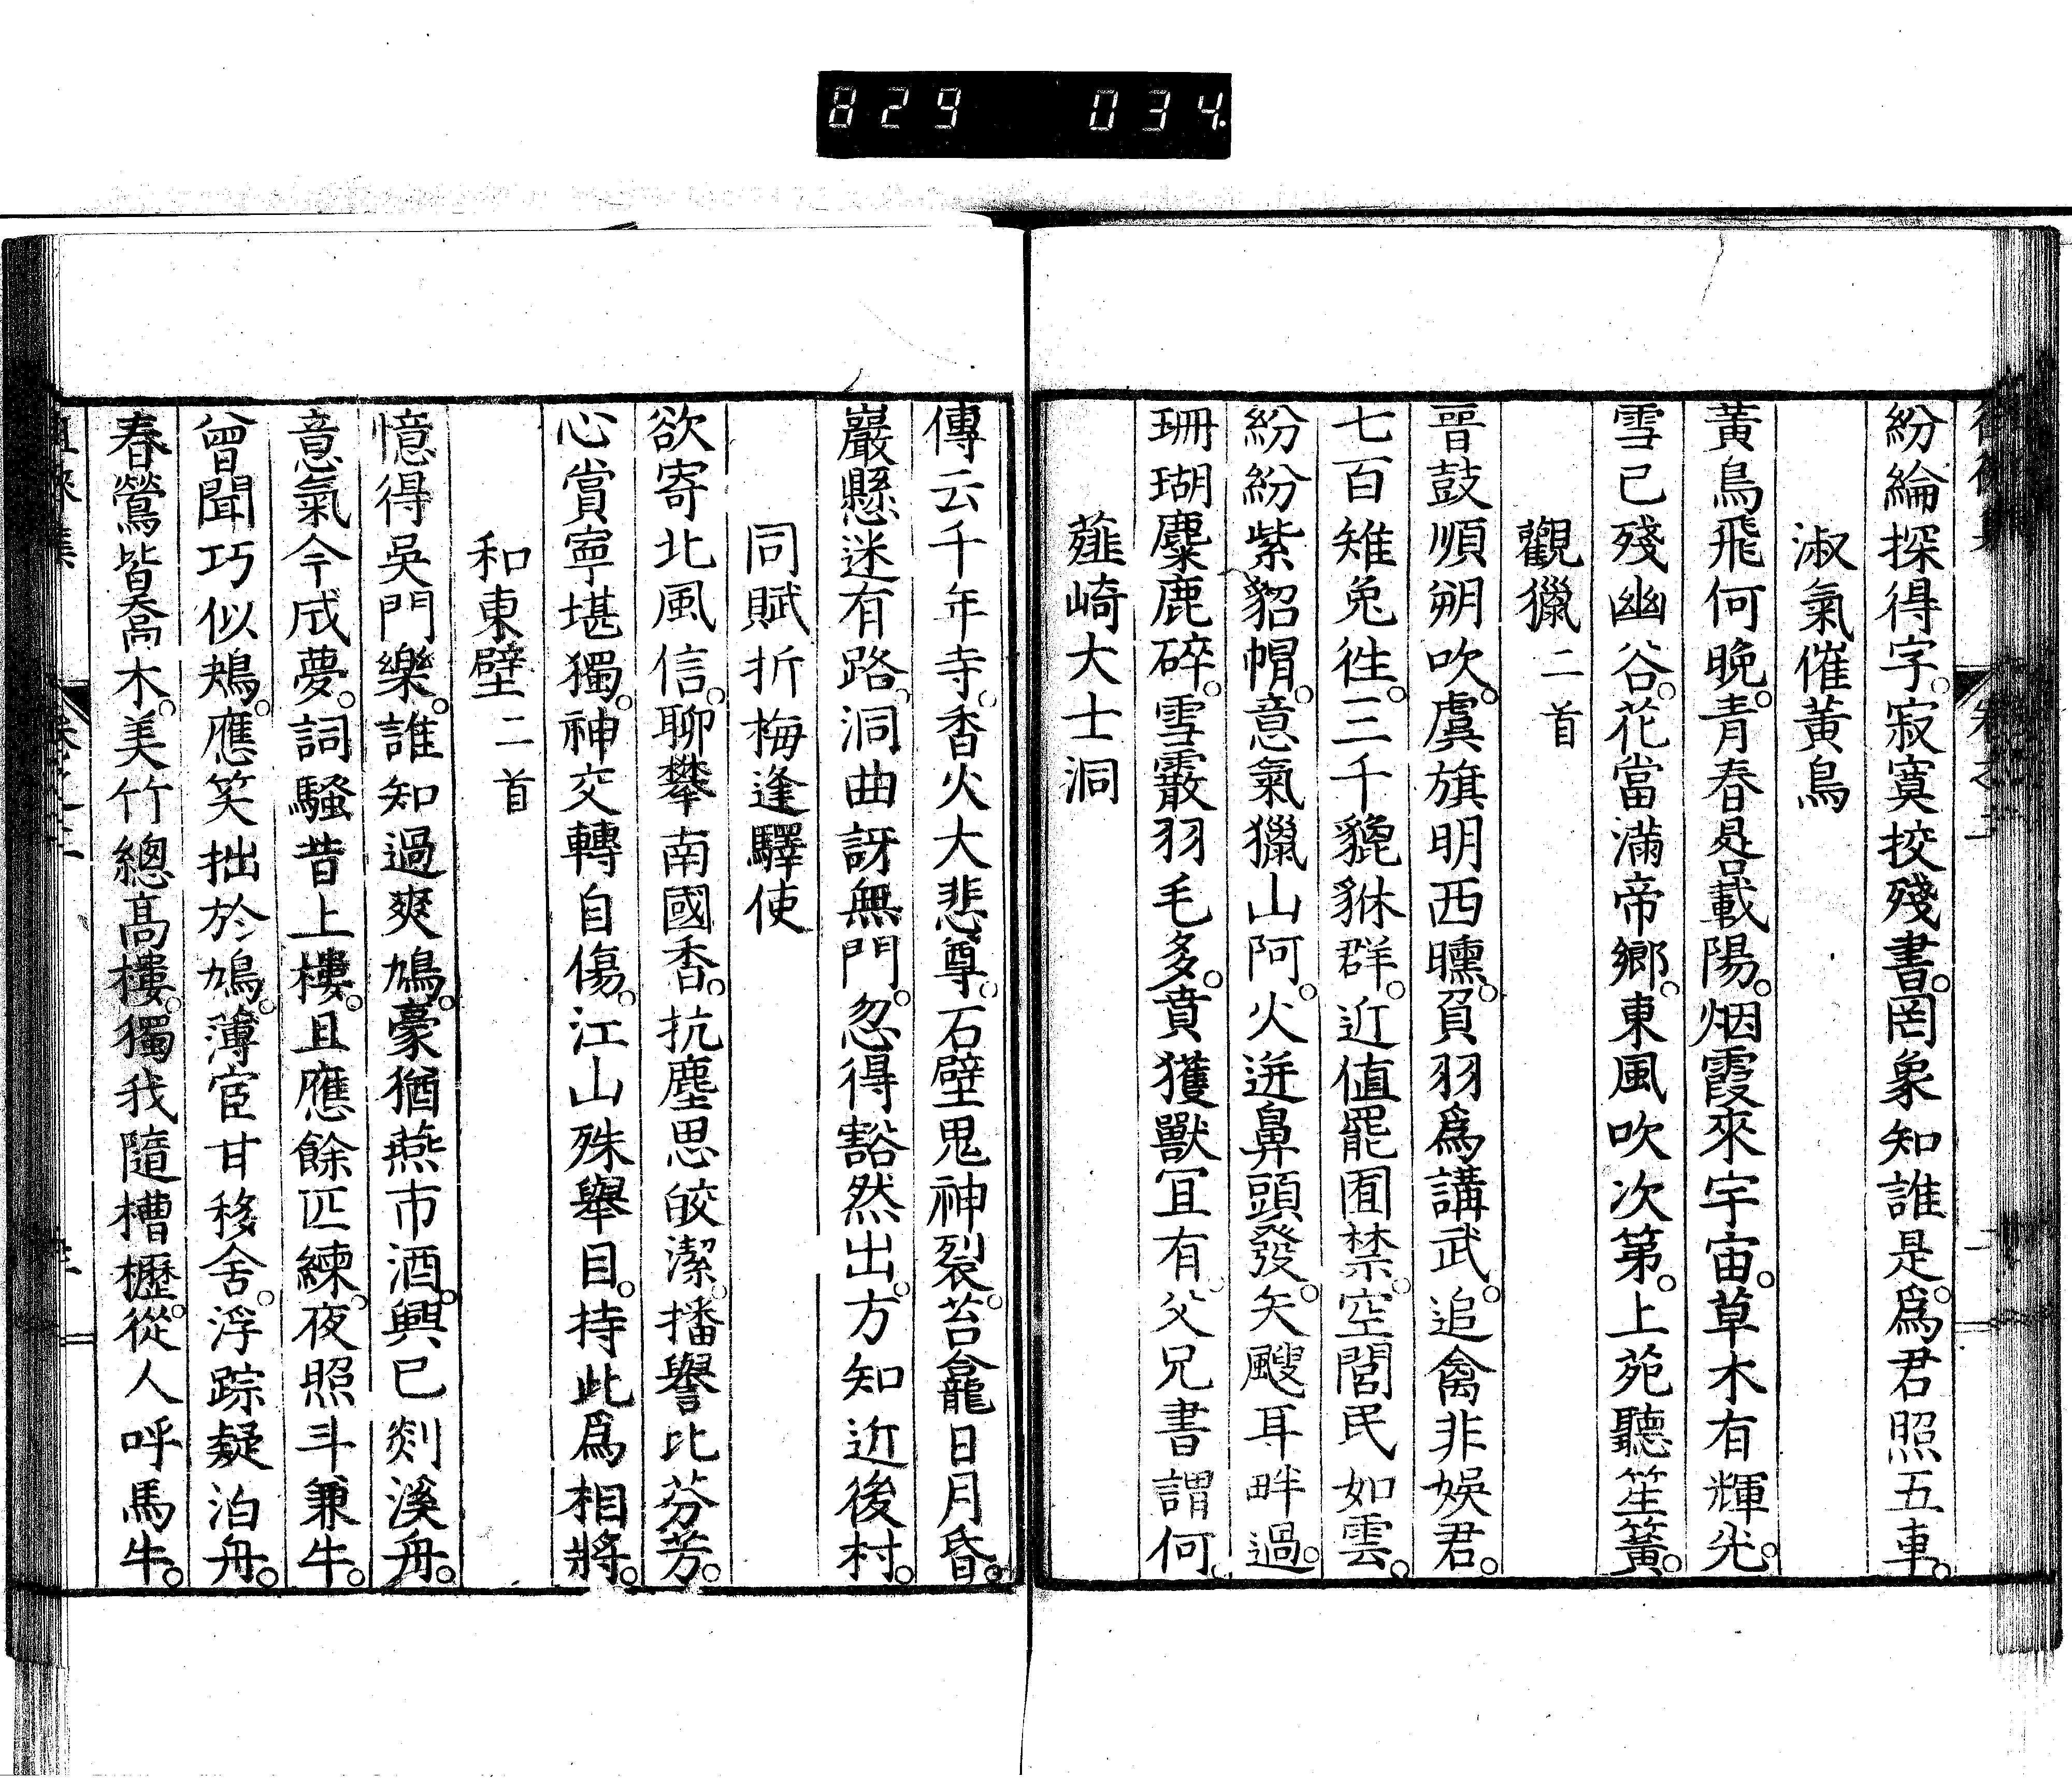 829 034
紛綸探得字。寂寞挍殘書。罔象知誰是。爲君照五車。
淑氣催黃鳥
黃鳥飛何晚。青春是載陽。烟霞來宇宙。草木有輝光。
雪已殘幽谷。花當滿帝鄉。東風吹次第。上苑聽笙簧。
觀獵二首
晉鼓順朔吹。虞旗明西曛。負羽爲講武。追禽非娛君。
七百雉兔徃。三千貔貅群。近値罷囿禁。空閭民如雲。
紛紛紫貂帽。意氣獵山阿。火迸鼻頭發。矢颼耳畔過。
珊瑚麋鹿碎。雪霰羽毛多。賁獲獸冝有。父兄書謂何。
薤崎大士洞
傳云千年寺。香火大悲尊。石壁鬼神裂。苔龕日月昏。
巖懸迷有路。洞曲訝無門。忽得豁然出。方知近後村。
同賦折梅逢驛使
欲寄北風信。聊攀南國香。抗塵思皎潔。播譽比芬芳。
心賞寧堪獨。神交轉自傷。江山殊舉目。持此爲相將。
和東壁二首
憶得吳門樂。誰知過爽鳩。豪猶燕市酒。興已剡溪舟。
意氣今成夢。詞騷昔上樓。且應餘匹練。夜照斗兼牛。
曾聞巧似鴂。應笑拙於鳩。薄宦甘移舍。浮踪疑泊舟。
春鶯皆喬木。美竹總高樓。獨我隨槽櫪。從人呼馬牛。